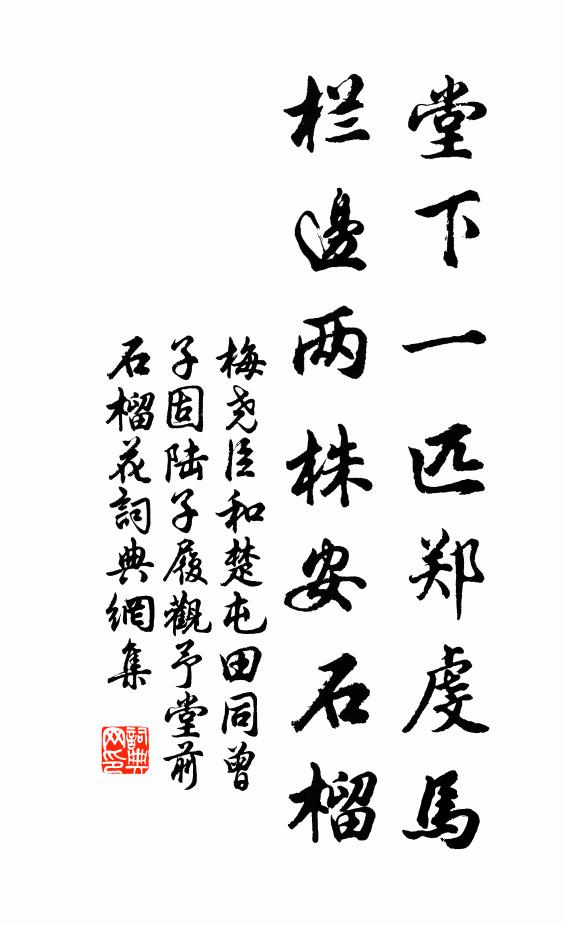 堂下一匹郑虔馬
栏邊两株安石榴
梅尧臣和楚屯田同曾
子固陆子履觀予堂前
石榴花詞典網集
詞典
网印